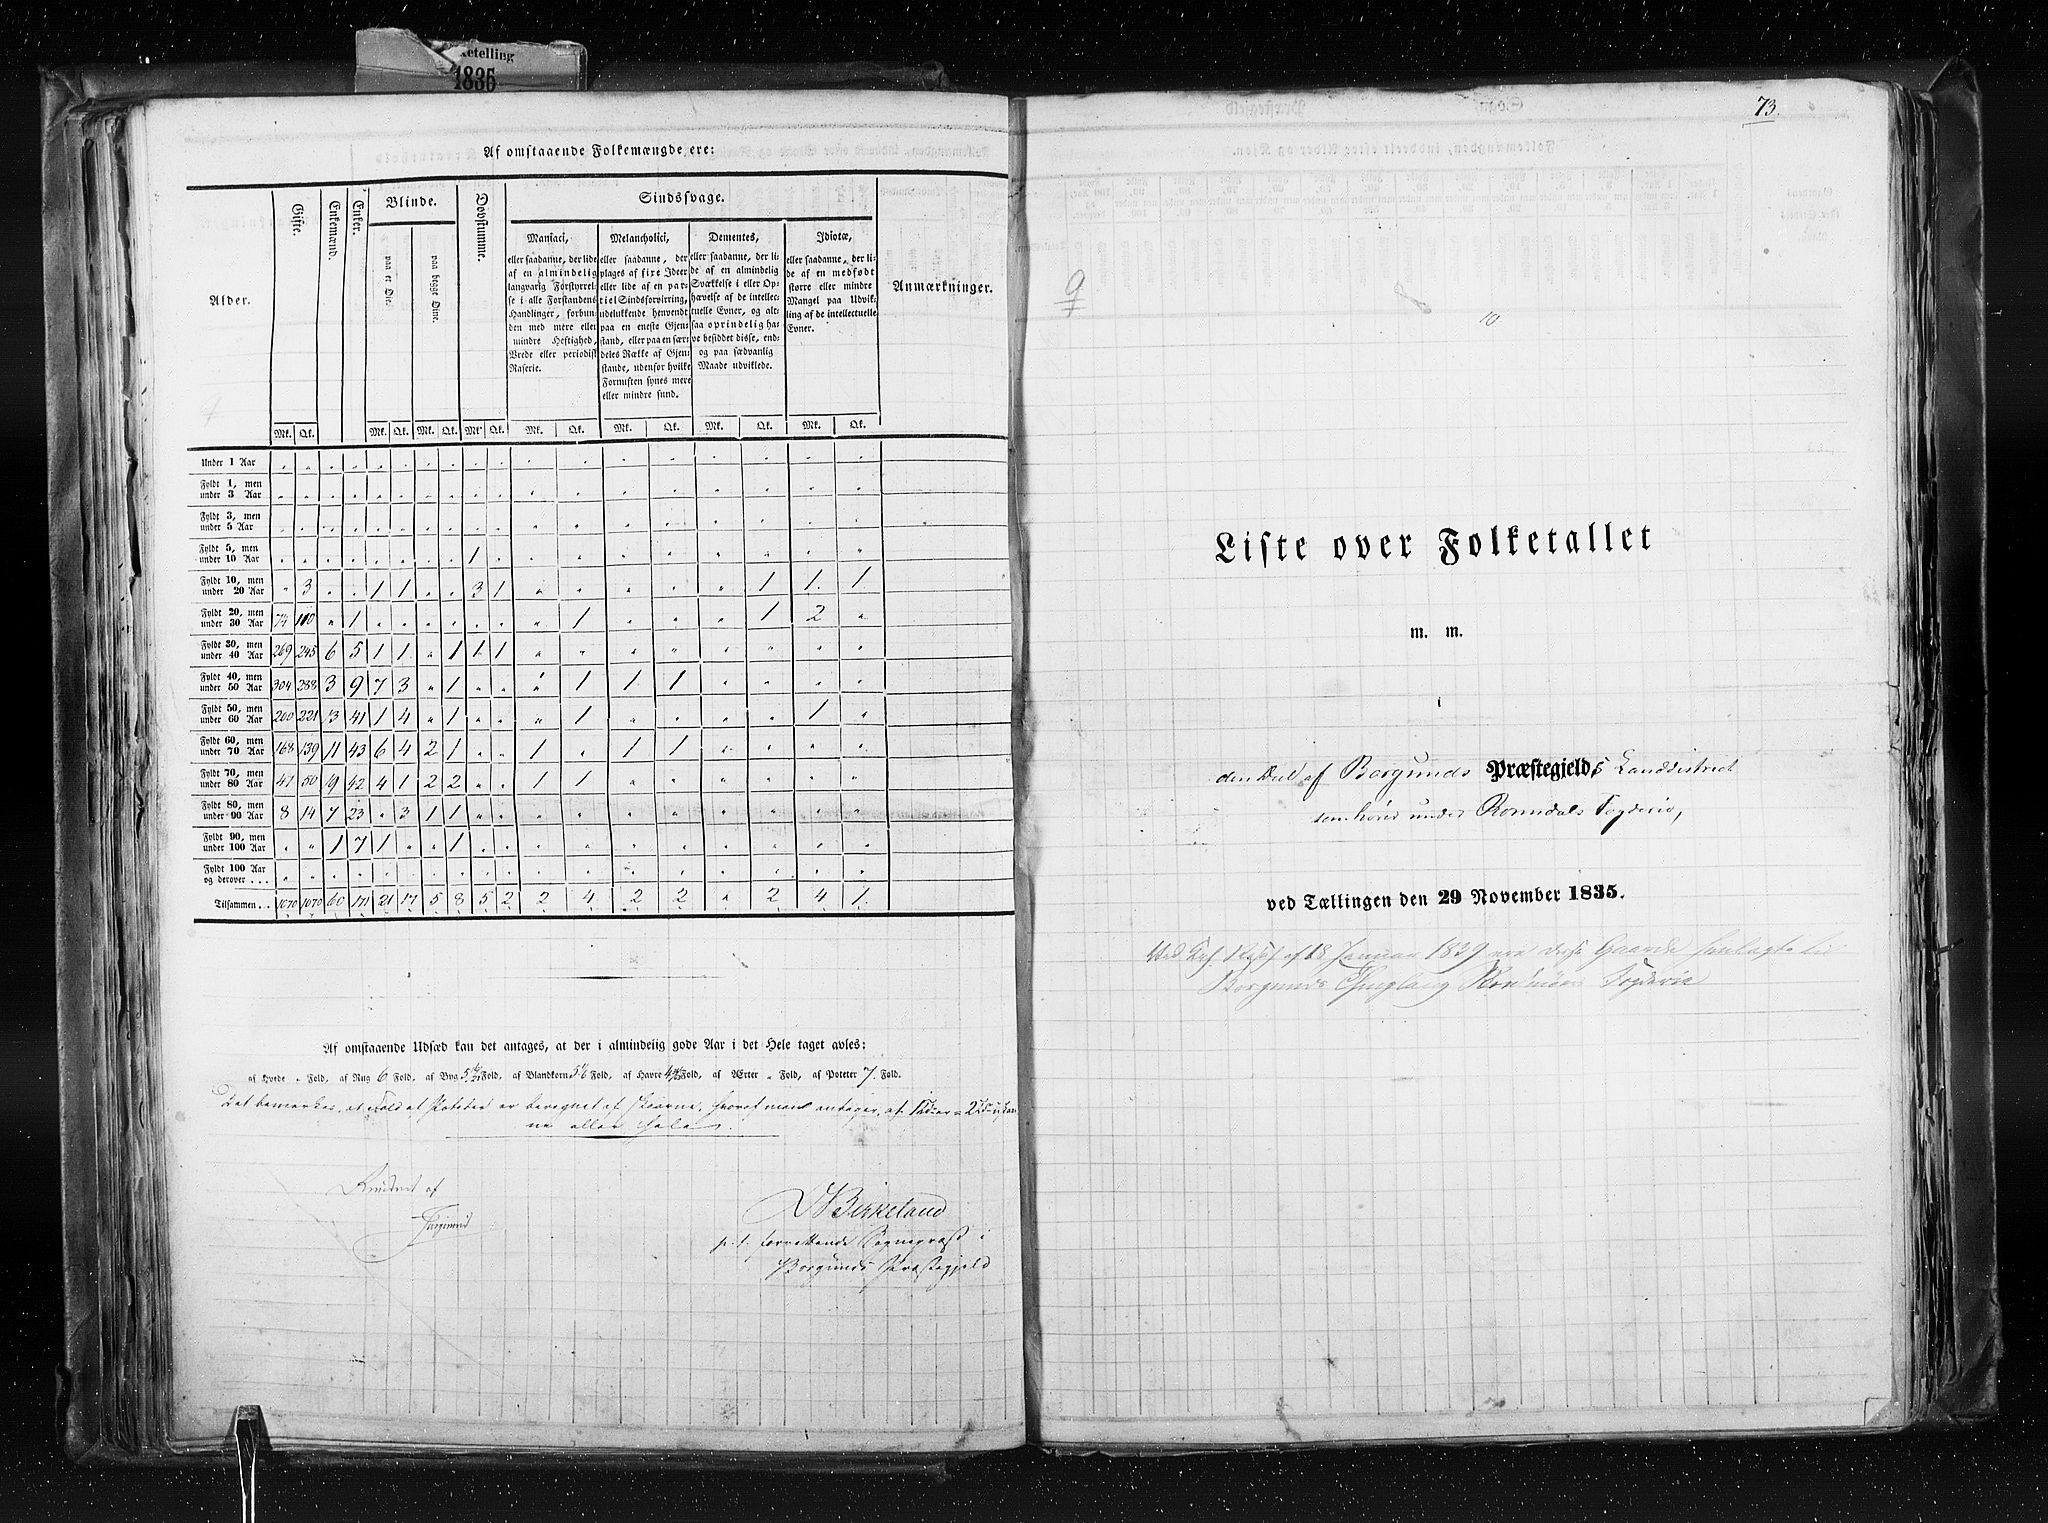 ketelling
1835
Af omstaaende Folkemængde ere:
Alder.
Gifte.
Enkemænd.
Enker.
Blinde.
paa et Øie.
paa begge Øine.
Døvstumme.
Sindssvage.
Maniaci,
eller saadanne, der lide
af en almindelig
langvarig Forstyrrel-
se i alle Forstandens
Handlinger, forbun-
den med mere eller
mindre Heftighed,
Vrede eller periodisk
Raserie.
Melancholici,
eller saadanne, der
plages af fixe Ideer
eller lide af en par-
tiel Sindsforvirring,
udelukkende henvendt
paa en eneste Gjen-
stand, eller paa en sær-
deles Række af Gjen-
stande, udenfor hvilke
Fornuften synes mere
eller mindre sund.
Dementes,
eller saadanne, der li-
de af en almindelig
Svækkelse i eller Op-
hævelse af de intellec-
tuelle Evner, og alt-
saa oprindelig ha-
ve besiddet disse, end-
og paa sædvanlig
Maade udviklede.
Idiotæ,
eller saadanne, der li-
de af en medfødt
større eller mindre
Mangel paa Udvik-
ling af de intellectuelle
Evner.
Anmærkninger.
Mk. Qk. Mk. Qk. Mk. Qk. Mk. Qk. Mk. Qk. Mk. Qk. Mk. Qk. Mk. Qk.
Under 1 Aar " " " " " " " " " " " " " " " " " "
Fyldt 1, men under 3 Aar " " " " " " " " " " " " " " " " " "
Fyldt 3, men under 5 Aar " " " " " " " " " " " " " " " " " "
Fyldt 5, men under 10 Aar " " " " " " " " 1 " " " " " " " " "
Fyldt 10, men under 20 Aar " 3 " " 1 1 " " 3 1 " " " " " 1 1 1
Fyldt 20, men under 30 Aar 74 110 " 1 " " " " " " " 1 " " " 1 2 "
Fyldt 30, men under 40 Aar 269 245 6 5 1 1 " 1 1 1 " " " " " " " "
Fyldt 40, men under 50 Aar 304 288 3 9 7 3 " 1 " " " 1 1 1 " " " "
Fyldt 50, men under 60 Aar 200 221 13 41 1 4 " 1 " " " 1 " " " " 1 "
Fyldt 60, men under 70 Aar 168 139 11 43 6 4 2 1 " " 1 " 1 1 " " " "
Fyldt 70, men under 80 Aar 47 50 19 42 4 1 2 2 " " 1 1 " " " " " "
Fyldt 80, men under 90 Aar 8 14 7 23 " 3 1 1 " " " " " " " " " "
Fyldt 90, men under 100 Aar " " 1 7 1 " " 1 " " " " " " " " " "
Fyldt 100 Aar og derover ... " " " " " " " " " " " " " " " " " "
Tilsammen .. 1070 1070 60 171 21 17 5 8 5 2 2 4 2 2 " 2 4 1.
Af omstaaende Udsæd kan det antages, at der i almindelig gode Aar i det Hele taget avles:
af Hvede " Fold, af Rug 6 Fold, af Byg 5 Fold, af Blandkorn 5 1/6 Fold, af Havre 4 Fold, af Ærter " Fold, af Poteter 7 Fold.
Det bemærkes, at Fold af Poteter er beregnet af Skaarne, hvoraf man antager, at
ne eller hele.
Revideret af
Birkeland
p. t. forrettende Sognepræst i
Borgunds Præstegjeld
73.
9
10
Liste over Folketallet
m. m.
i
den Deel af Borgunds Præstegjelds Landdistrict
som hører under Romsdals Fogderie,
ved Tællingen den 29 November 1835.
Ved Kgl. Resol. af 18 Januar 1839 ere disse Gaarde henlagte til
Borgunds Thinglaug Søndmørs Fogderie